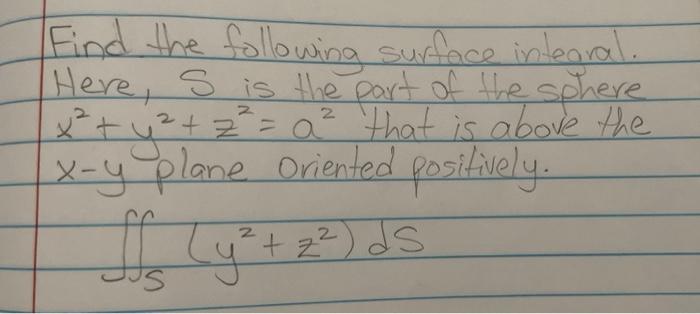 Find the following surface integral.
Here, S is the part of the sphere
x² + y² + z² = a² that is above the
x-y plane oriented positively.
∬_S (y² + z²) dS